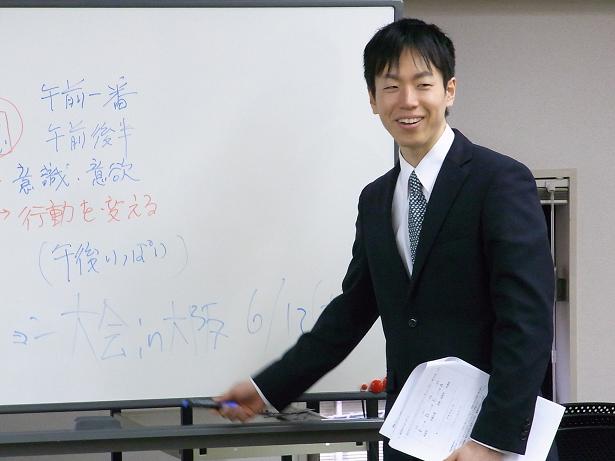 午前一番
午前後半
意識・意欲
→行動を変える
(午後いっぱい)
大会in大阪 6/12